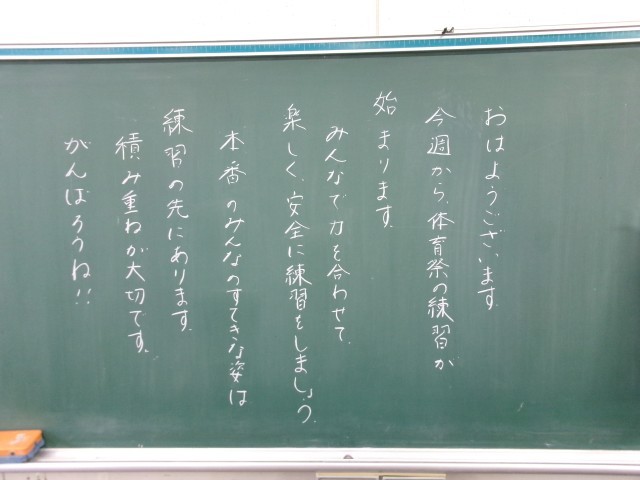 おはようございます。
今週から、体育祭の練習が
始まります。
みんなで力を合わせて、
楽しく、安全に練習をしましょう。
本番のみんなのすてきな姿は
練習の先にあります。
積み重ねが大切です。
がんばろうね!!